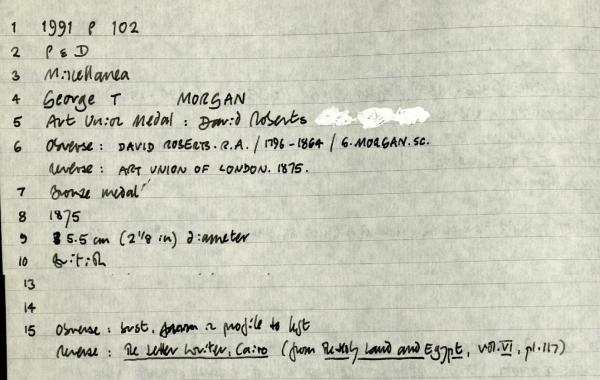 1 1991 P 102
2 P & D
3 Miscellanea
4 George T MORGAN
5 Art Union Medal : David Roberts
6 Obverse : DAVID ROBERTS. R.A. / 1796-1864 / G. MORGAN. SC.
reverse : ART UNION OF LONDON. 1875.
7 Bronze medal
8 1875
9 5.5 cm (2 1/8 in) diameter
10 British
13
14
15 Obverse : bust, in profile to left
reverse : The Letter Writer, Cairo (from The Holy Land and Egypt, vol. VI, pl. 117)